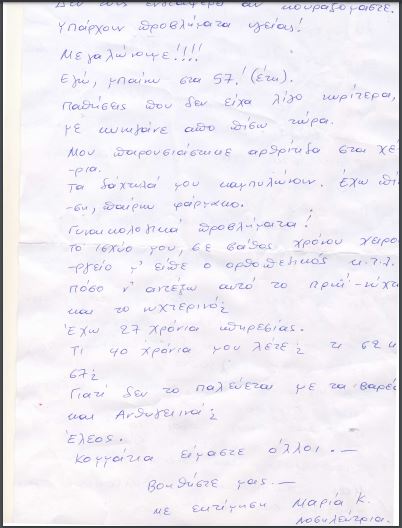 Δεν τους ενδιαφέρει αν κουραζόμαστε.
Υπάρχουν προβλήματα υγείας!
Μεγαλώνουμε!!!!
Εγώ, μπαίνω στα 57! (έτη).
Παθήσεις που δεν είχα λίγο νωρίτερα,
με κυνηγάνε από πίσω τώρα.
Μου παρουσιάστηκε αρθρίτιδα στα χέ
-ρια.
Τα δάχτυλά μου καμπυλώνουν. Έχω πίε
-ση, παίρνω φάρμακο.
Γυναικολογικά προβλήματα!
Το ισχύο μου, σε βάθος χρόνου χειρου
-ργείο μ' είπε ο ορθοπεδικός κ.τ.λ.
Πόσο ν' αντέξω αυτό το πρωί-νύχτα
και το νυχτερινό;
Έχω 27 χρόνια υπηρεσίας.
Τι 40 χρόνια μου λέτε; τι 62 κ
67;
Γιατί δεν το παλεύεται με τα βαρέα
και Ανθυγιεινά;
Έλεος.
Κομμάτια είμαστε όλλοι.—
Βοηθήστε μας.—
με εκτίμηση Μαρία Κ.
Νοσηλεύτρια.